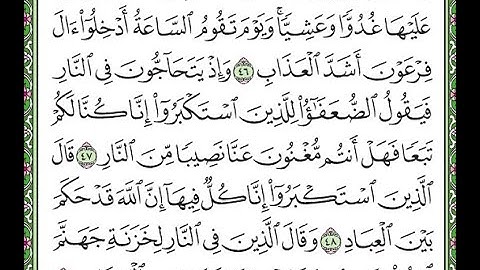 عَلَيْهَا غُدُوًّا وَعَشِيًّا ۖ وَيَوْمَ تَقُومُ ٱلسَّاعَةُ أَدْخِلُوٓا۟ ءَالَ
فِرْعَوْنَ أَشَدَّ ٱلْعَذَابِ ٤٦ وَإِذْ يَتَحَآجُّونَ فِى ٱلنَّارِ
فَيَقُولُ ٱلضُّعَفَٰٓؤُا۟ لِلَّذِينَ ٱسْتَكْبَرُوٓا۟ إِنَّا كُنَّا لَكُمْ
تَبَعًا فَهَلْ أَنتُم مُّغْنُونَ عَنَّا نَصِيبًا مِّنَ ٱلنَّارِ ٤٧ قَالَ
ٱلَّذِينَ ٱسْتَكْبَرُوٓا۟ إِنَّا كُلٌّ فِيهَآ إِنَّ ٱللَّهَ قَدْ حَكَمَ
بَيْنَ ٱلْعِبَادِ ٤٨ وَقَالَ ٱلَّذِينَ فِى ٱلنَّارِ لِخَزَنَةِ جَهَنَّمَ